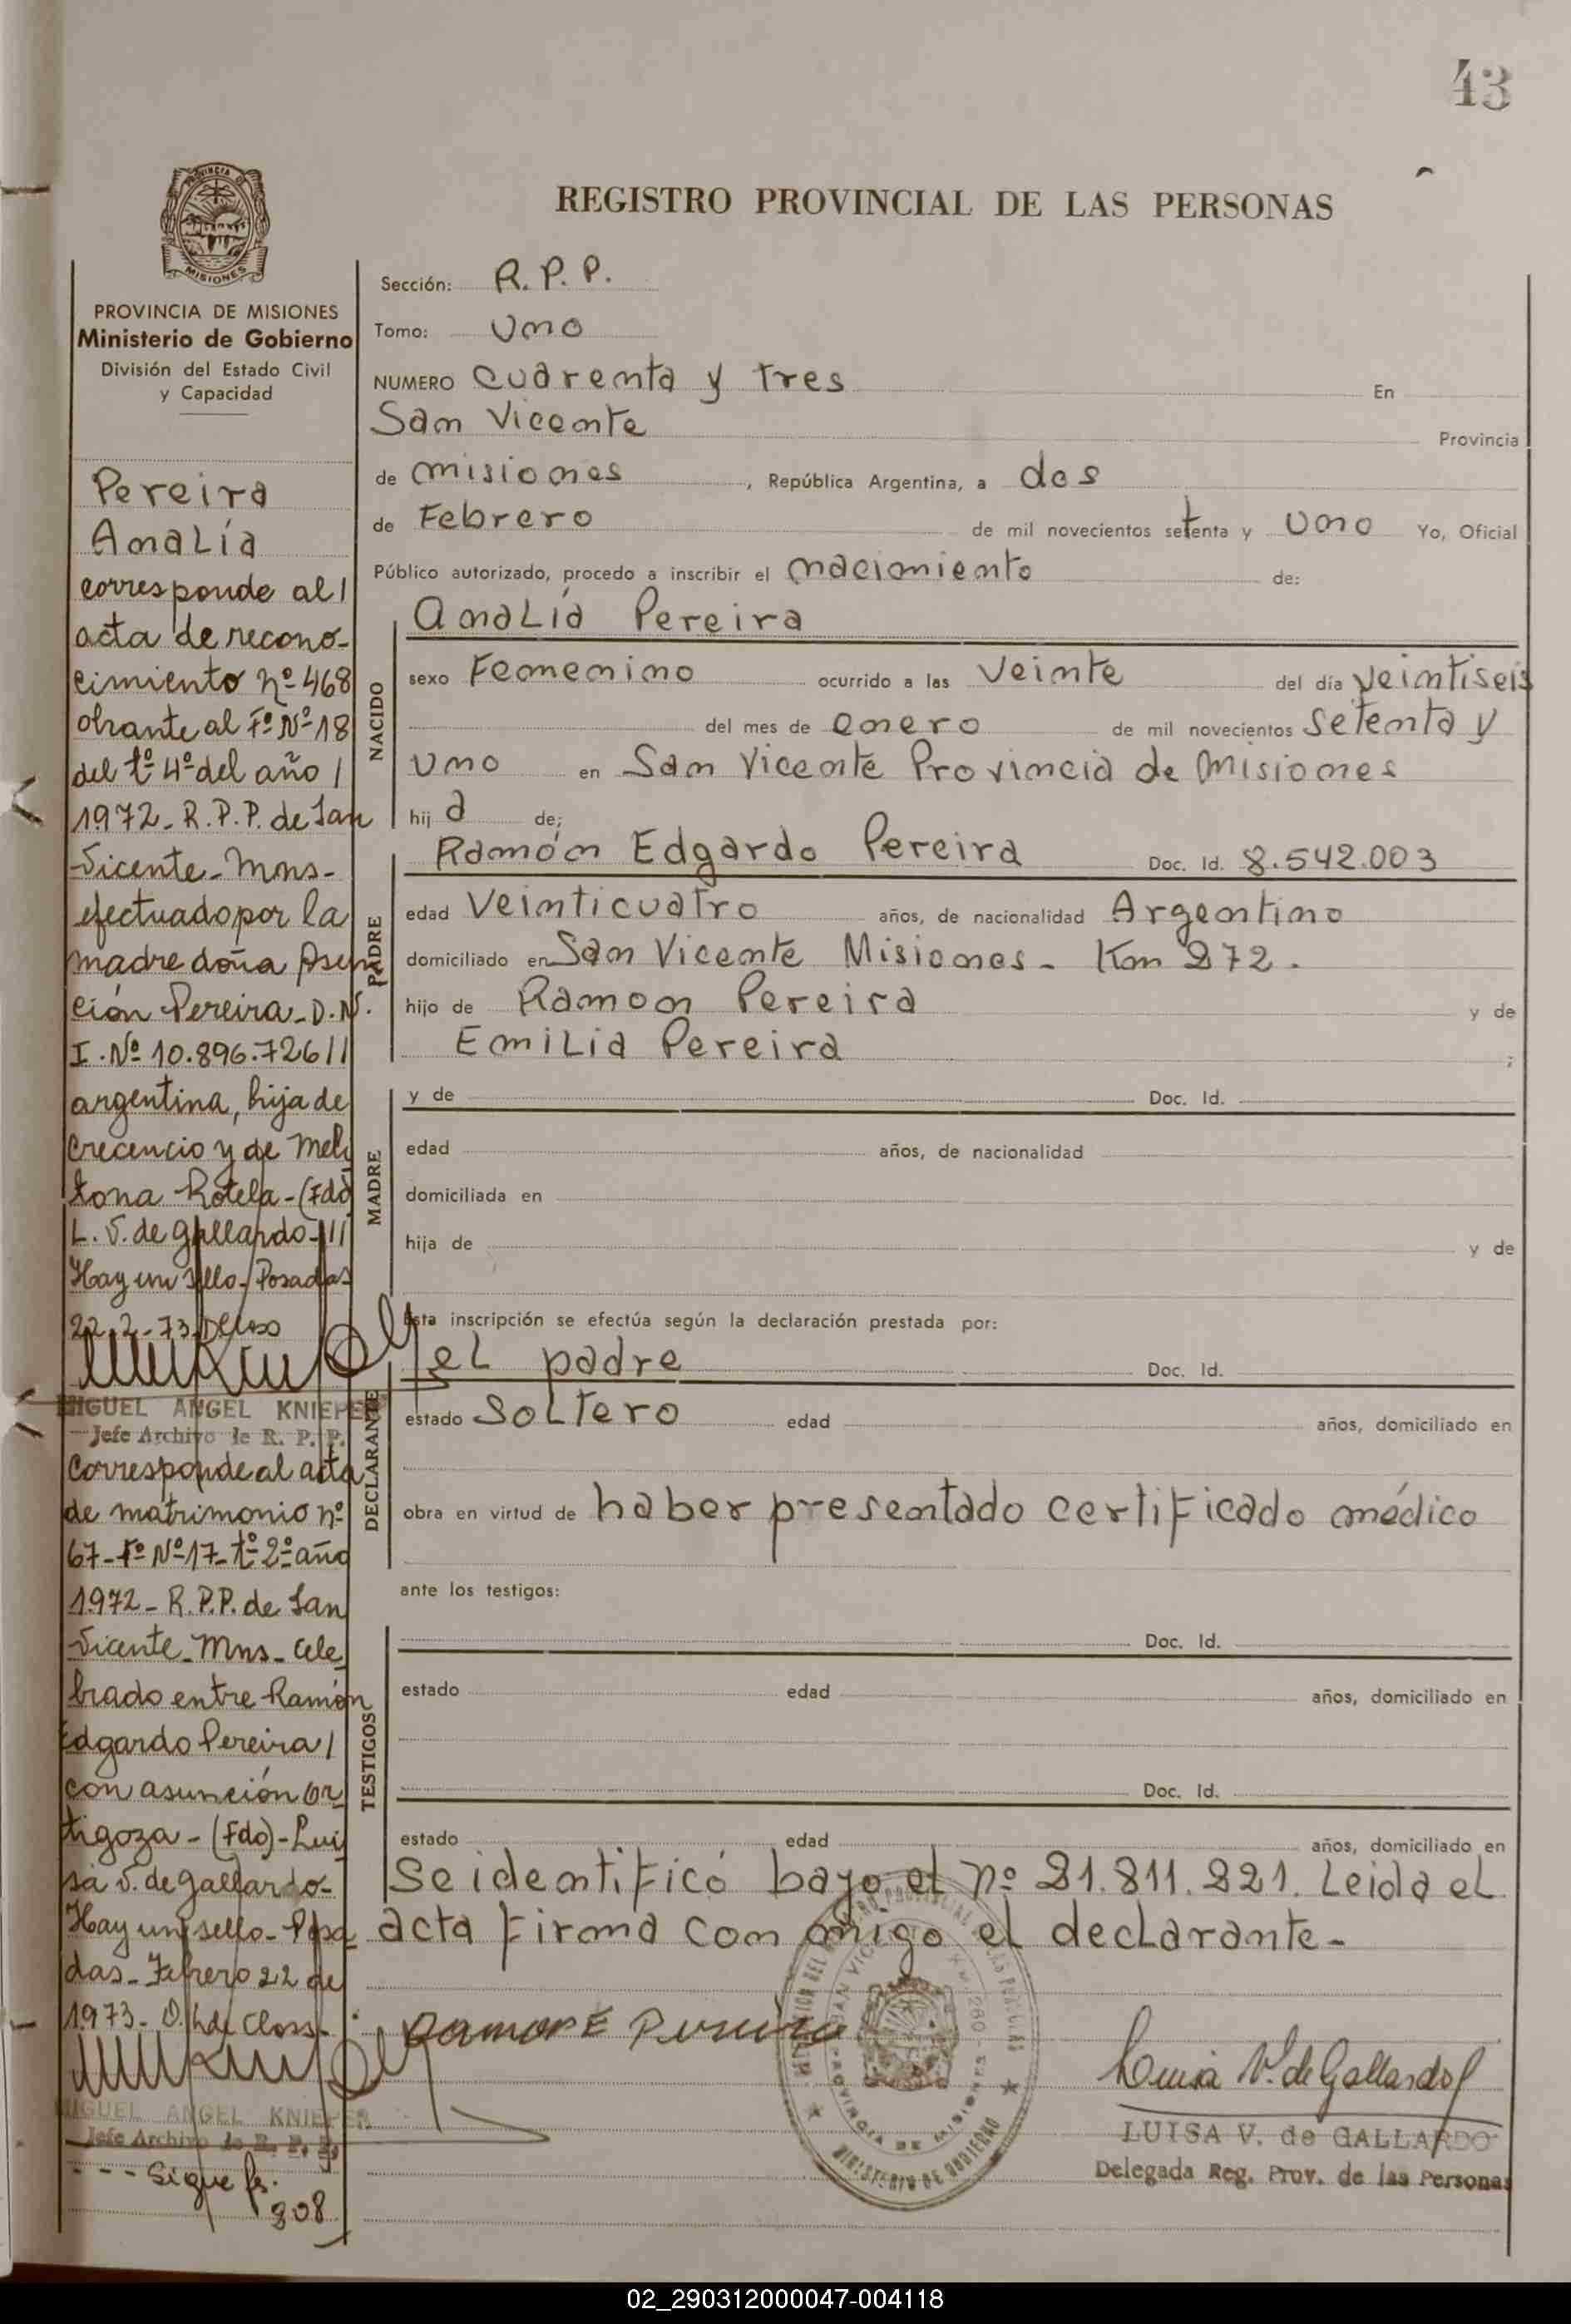 43
REGISTRO PROVINCIAL DE LAS PERSONAS
PROVINCIA DE MISIONES
Ministerio de Gobierno
División del Estado Civil
y Capacidad
Pereira
Amalía
corresponde al /
acta de recono-
cimiento nº 468
obrante al Fº Nº 18
del tº 4º del año /
1972 - R.P.P. de San
Vicente - Mns -
efectuado por la
madre doña Asun
ción Pereira - D.N.
I. Nº 10.896.726 //
argentina, hija de
Crecencio y de Meli
tona Rotela - (Fdo)
L. V. de Gallardo - ///
Hay un sello - Posadas
22-2-73
MIGUEL ANGEL KNIEPER
Jefe Archivo de R. P. P.
Corresponde al acta
de matrimonio nº
67 - Fº Nº 17 - tº 2º año
1972 - R.P.P. de San
Vicente - Mns - cele
brado entre Ramón
Edgardo Pereira /
con asunción Or
tigoza - (Fdo) - Lui
sa V. de Gallardo -
Hay un sello - Posa
das - Febrero 22 de
1973 -
MIGUEL ANGEL KNIEPER
Jefe Archivo de R. P. P.
--- Sigue fs.
308
Sección: R. P. P.
Tomo: Uno
NUMERO Cuarenta y tres En
San Vicente Provincia
de misiones, República Argentina, a dos
de Febrero de mil novecientos setenta y Uno Yo, Oficial
Público autorizado, procedo a inscribir el nacimiento de:
NACIDO
Amalía Pereira
sexo Femenino ocurrido a las Veinte del día Veintiseis
del mes de enero de mil novecientos setenta y
Uno en San Vicente Provincia de Misiones
hij a de;
PADRE
Ramón Edgardo Pereira Doc. Id. 8.542.003
edad Veinticuatro años, de nacionalidad Argentino
domiciliado en San Vicente Misiones - Km 272.
hijo de Ramon Pereira y de
Emilia Pereira ;
MADRE
y de Doc. Id.
edad años, de nacionalidad
domiciliada en
hija de y de
Esta inscripción se efectúa según la declaración prestada por:
DECLARANTE
el padre Doc. Id.
estado Soltero edad años, domiciliado en
obra en virtud de haber presentado certificado médico
ante los testigos:
TESTIGOS
Doc. Id.
estado edad años, domiciliado en
Doc. Id.
estado edad años, domiciliado en
Se identificó bajo el nº 21.811.221. Leida el
acta firma con migo el declarante -
Ramon E Pereira
Luisa V. de Gallardo
LUISA V. de GALLARDO
Delegada Reg. Prov. de las Personas
MINISTERIO DE GOBIERNO
02_290312000047-004118